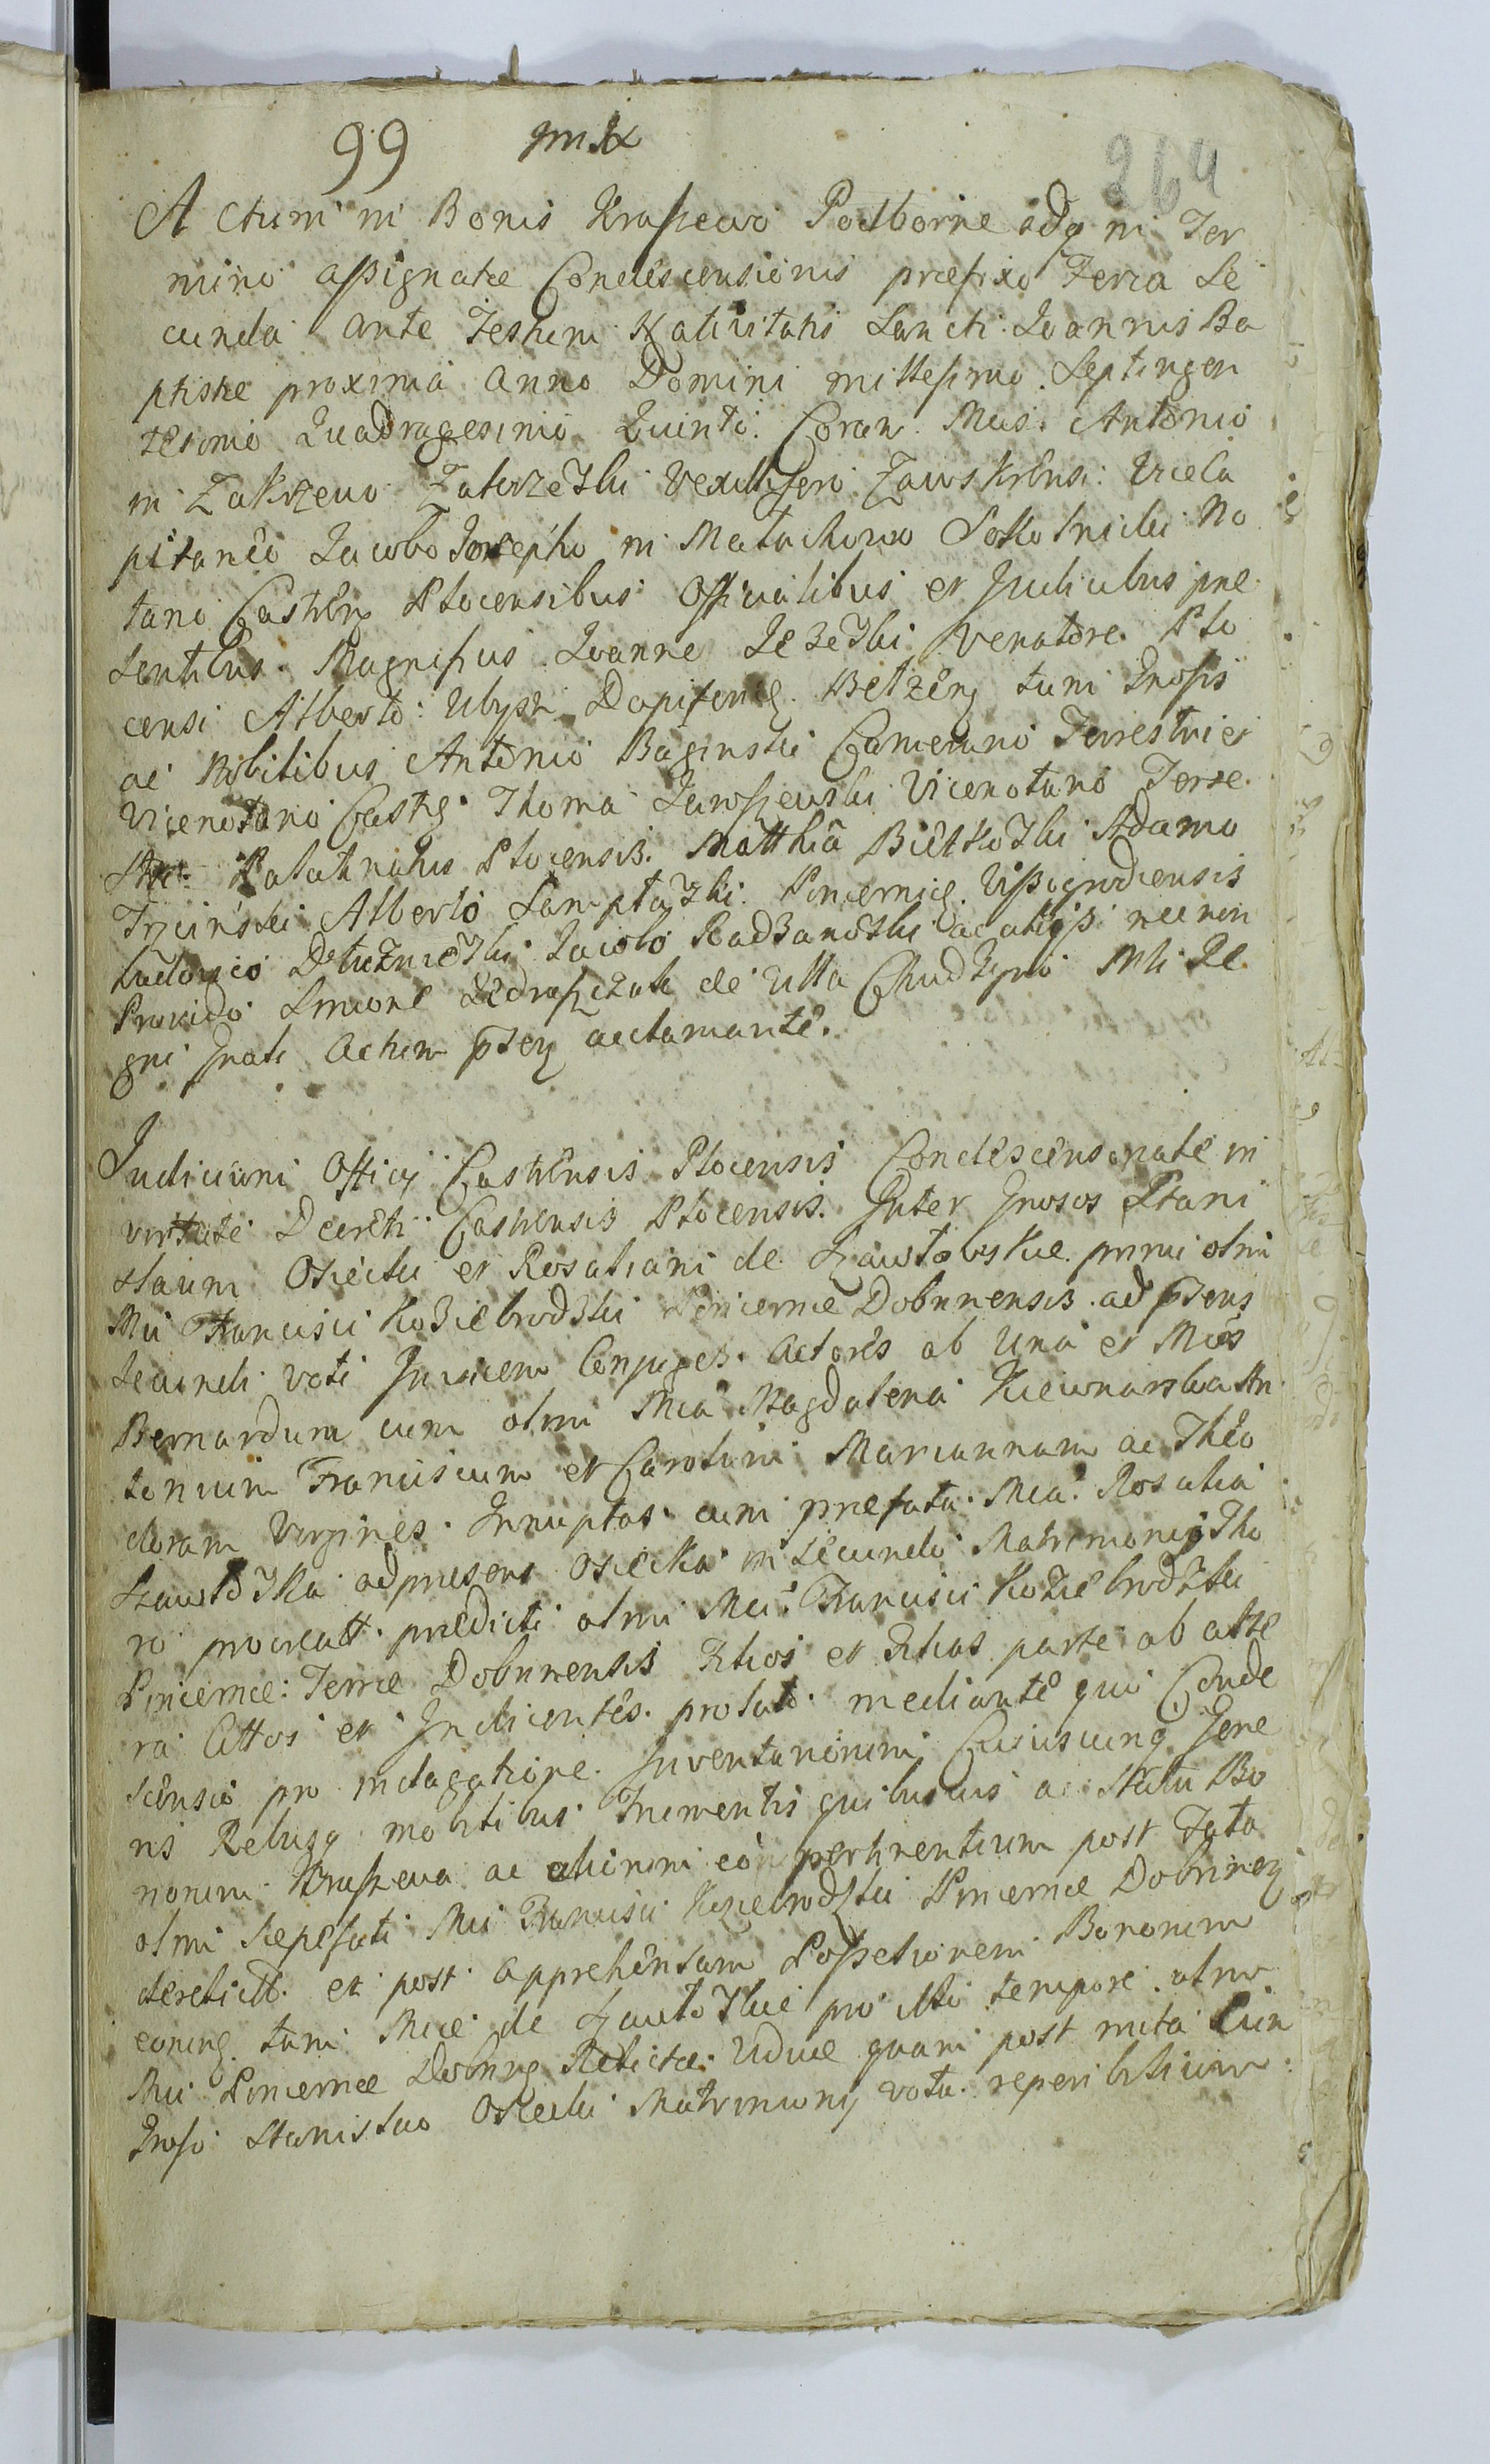 99
264
Actum in Bonis Kraszewo Podborne idq in Ter
mino assignatae Condescensionis praefixo Feria Se
cunda ante Festum Nativitatis Sancti Joannis Ba
ptistae proxima Anno Domini millesimo Septingen
tesimo Quadragesimo Quinto. Coram Mcis. Antonio
in Zakrzewo Zakrzewski Vexillifero Zawskrensi. Viceca
pitaneo Jacobo Josepho in Matachowo Sokolnicki No
tario Castren Plocensibus Officialibus et Judicibus prae
sentibus. Magnificis Joanne Jezewski Venatore Plo
censi Alberto Ubysz Dapifero Belzen tum Grosis
ac Nobilibus Antonio Baginski Camerario Terrestri et
Vicenotario Castr. Thoma Jaroszewski Vicenotario Terre
Palatinatus Plocensis. Matthia Bielkowski Adamo
Trzcinski Alberto Lemptowski. Pincernae Vissogrodiensis
Ludovico Dluzniewski Jacobo Radzanowski ac aliis nec non
Provido Simone de Villa Chudzyno Mli Re
gni Grali Actum pssen acclamante.
Judicium Officij Castrensis Plocensis Condescensionale in
virtute Decreti Castrensis Plocensis. Inter Grosos Stani
slaum Osiecki et Rosaliam de Szawlowskie primi olim
Mci Francisci Koziebrodzki Pincernae Dobrinensis ad pssens
secundi voti Invicem Conjuges. Actores ab una et Mcos
Bernardum cum olim Mca Magdalena Kuewnarska An
tonium Franciscum et Carolum Mariannam ac Theo
doram Virgines Innuptas cum praefata Mca Rosalia
Szawlowska ad praesens Osiecka in secundo Matrimonio Tho
ro procreatt. praedicti olim Mci Francisci Koziebrodzki
Pincernae Terrae Dobrinensis Filios et Filias parte ab alte
ra Cittos et Indicentes. prolato mediante quo Conde
scensio pro indagatione Inventariorum Cujuscunq Gene
ris Rebusq mobilibus Frumentis quibusvis ac Statu Bo
norum Kraszewa ac aliorum eo pertinentium post Fata
olim saepefati Mci Francisci Koziebrodzki Pincernae Dobrinen
derelictt. et post apprehensam Possessionem Bonorum
eorunq tum Mcae de Szawlowskie pro illo tempore olim
Mci Pincernae Dobrinen Relictae Viduae quam post inita cum
Groso Stanislao Osiecki Matrimonij vota reperibilium